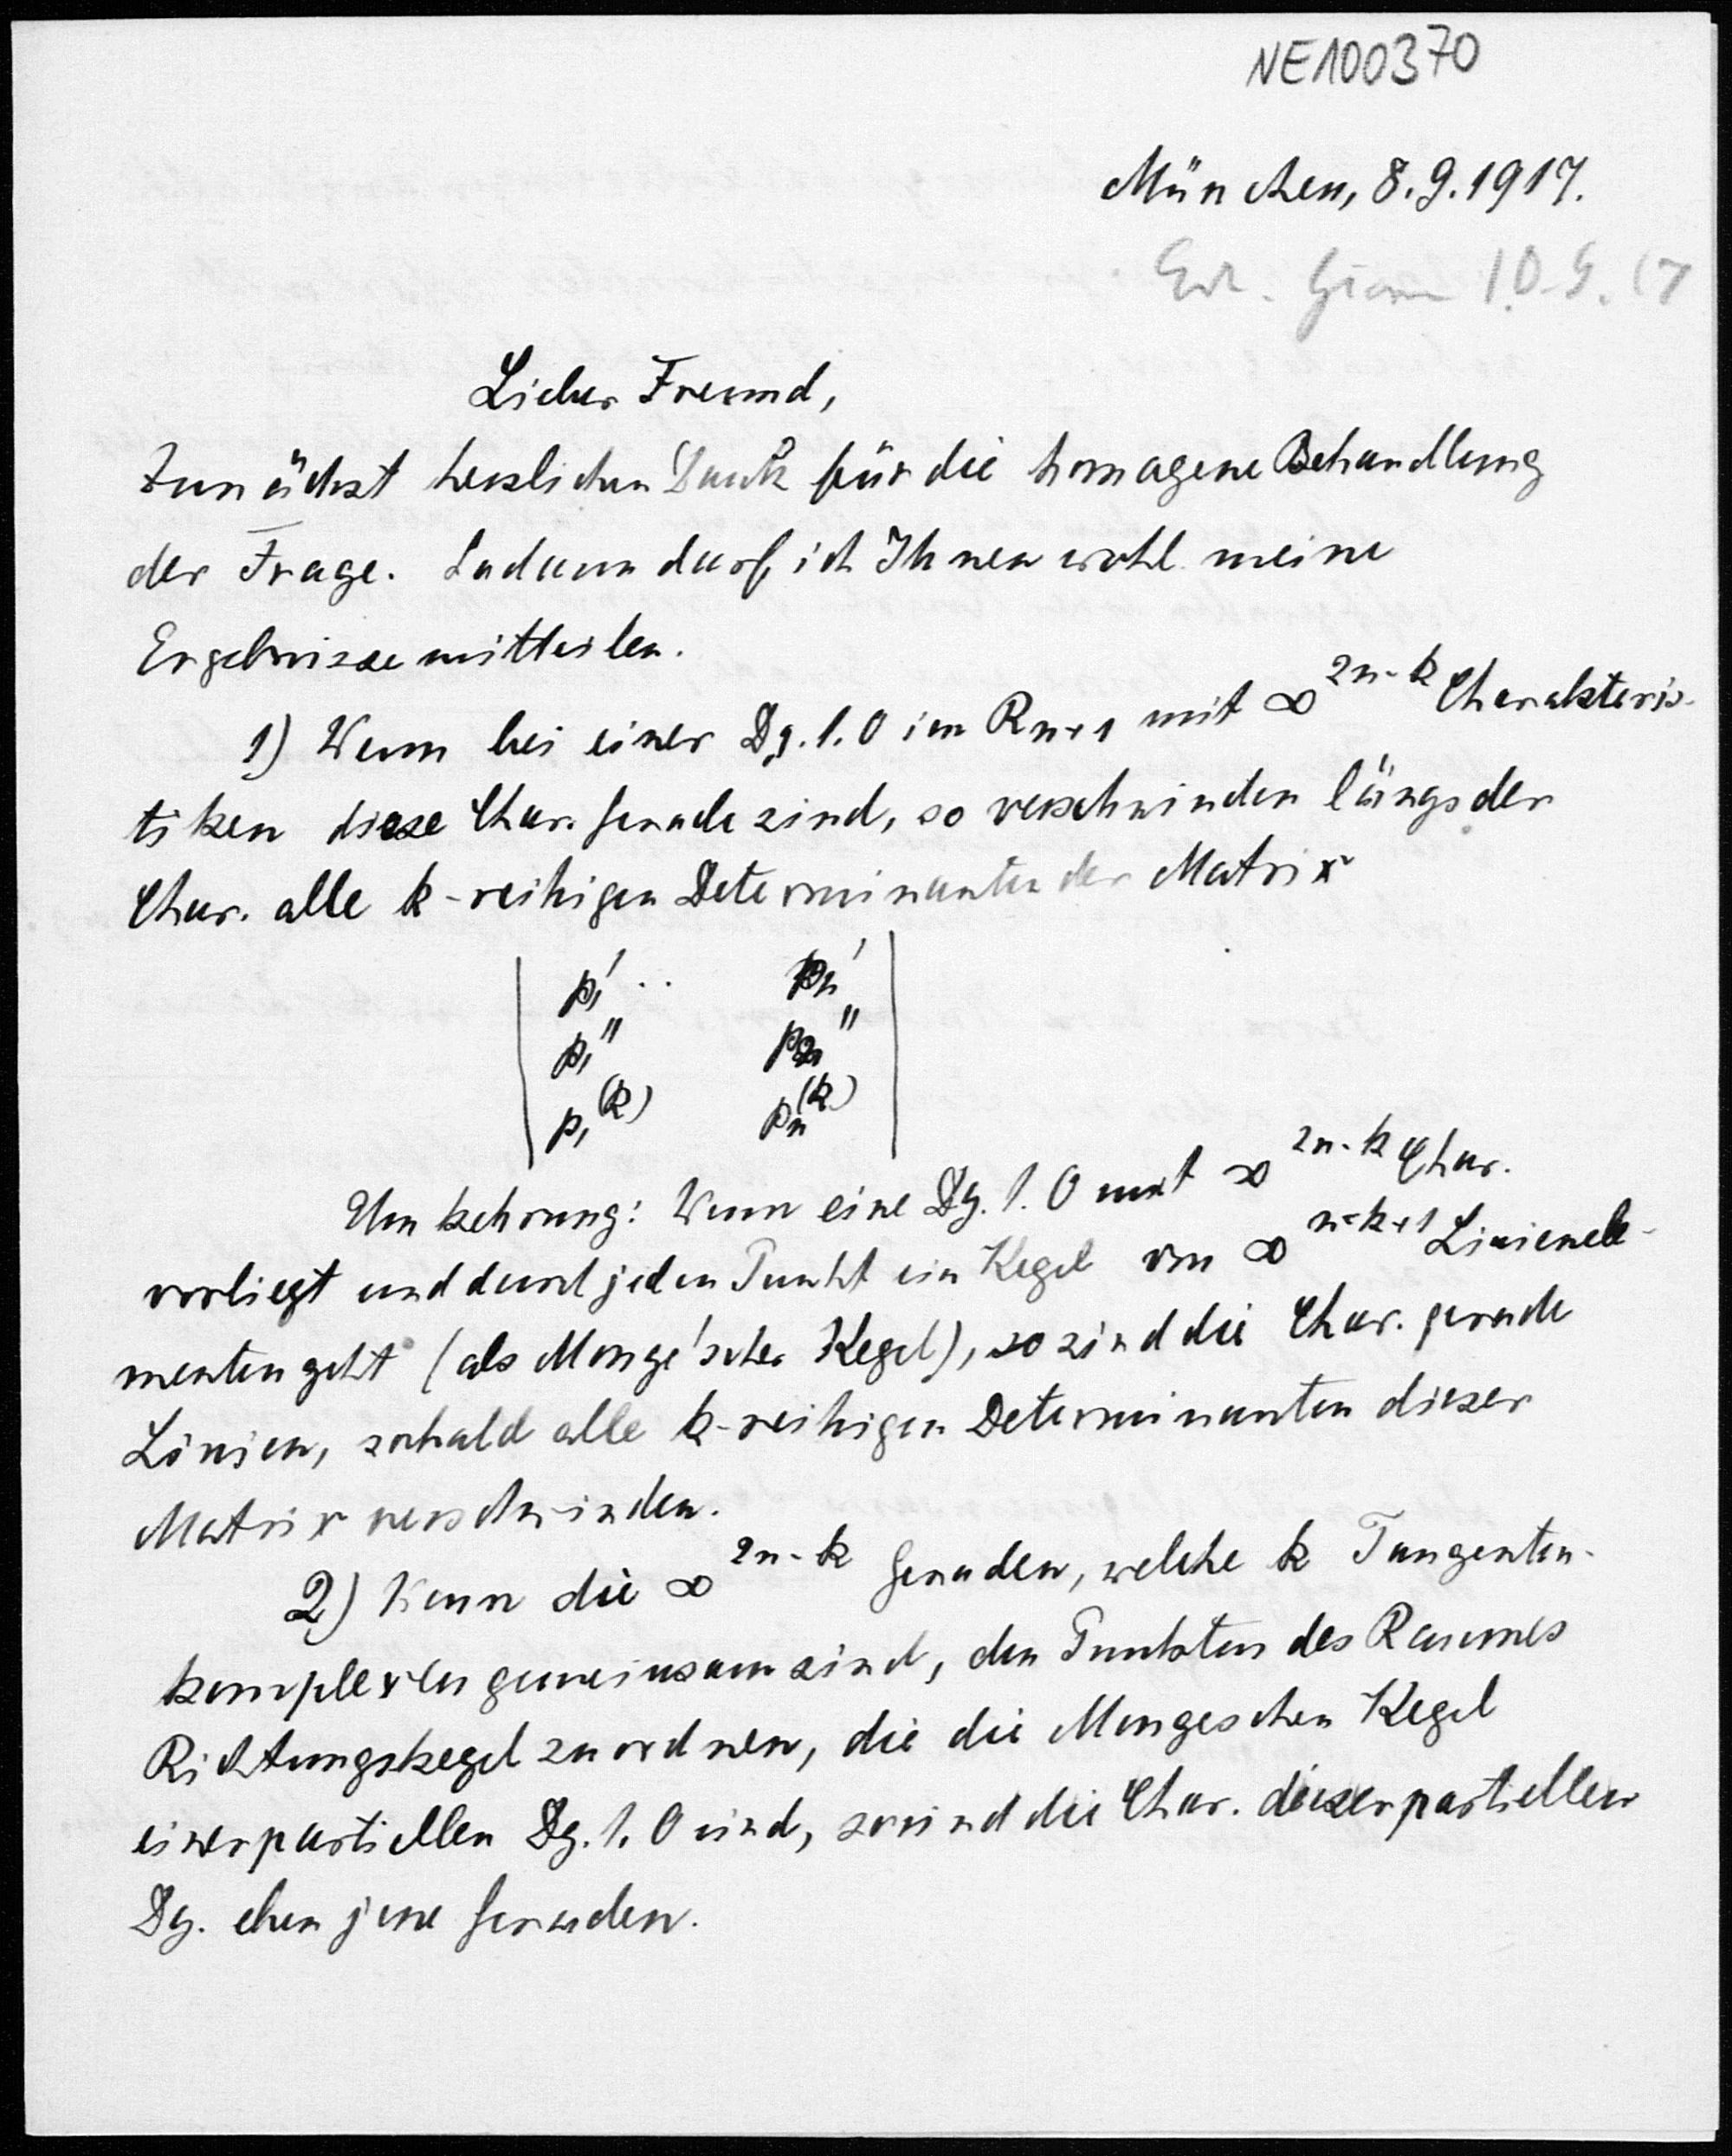 NE100370
München, 8.9.1917.
10.9.17
Lieber Freund,
Zunächst herzlichen Dank für die homogene Behandlung
der Frage. Sodann darf ich Ihnen wohl meine
Ergebnisse mitteilen.
1) Wenn bei einer Dg. 1. O im Rn+1 mit ∞^{2n-k} Charakteris-
tiken diese Char. Gerade sind, so verschwinden längs der
Char. alle k-reihigen Determinanten der Matrix
| p₁' .. pₙ' |
| p₁'' pₙ'' |
| p₁^{(k)} pₙ^{(k)} |
Umkehrung: Wenn eine Dg. 1. O mit ∞^{2n-k} Char.
vorliegt und durch jeden Punkt ein Kegel von ∞^{n-k+1} Linienele-
menten geht (als Monge'scher Kegel), so sind die Char. gerade
Linien, sobald alle k-reihigen Determinanten dieser
Matrix verschwinden.
2) Wenn die ∞^{2n-k} Geraden, welche k Tangenten-
komplexen gemeinsam sind, den Punkten des Raumes
Richtungskegel zuordnen, die die Mongeschen Kegel
einer partiellen Dg. 1. O sind, so sind die Char. dieser partiellen
Dg. eben jene Geraden.